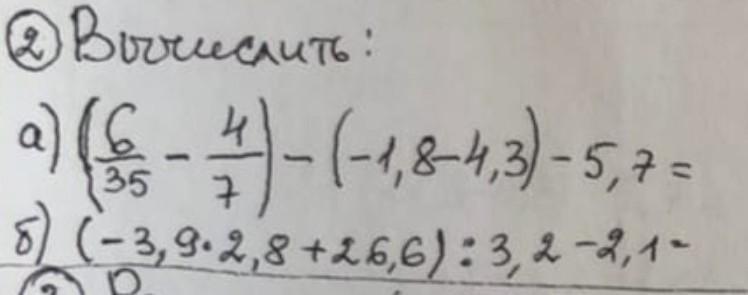 ② Вычислить:
а) (6/35 - 4/7) - (-1,8-4,3) - 5,7 =
б) (-3,9·2,8+26,6) : 3,2 - 2,1 -